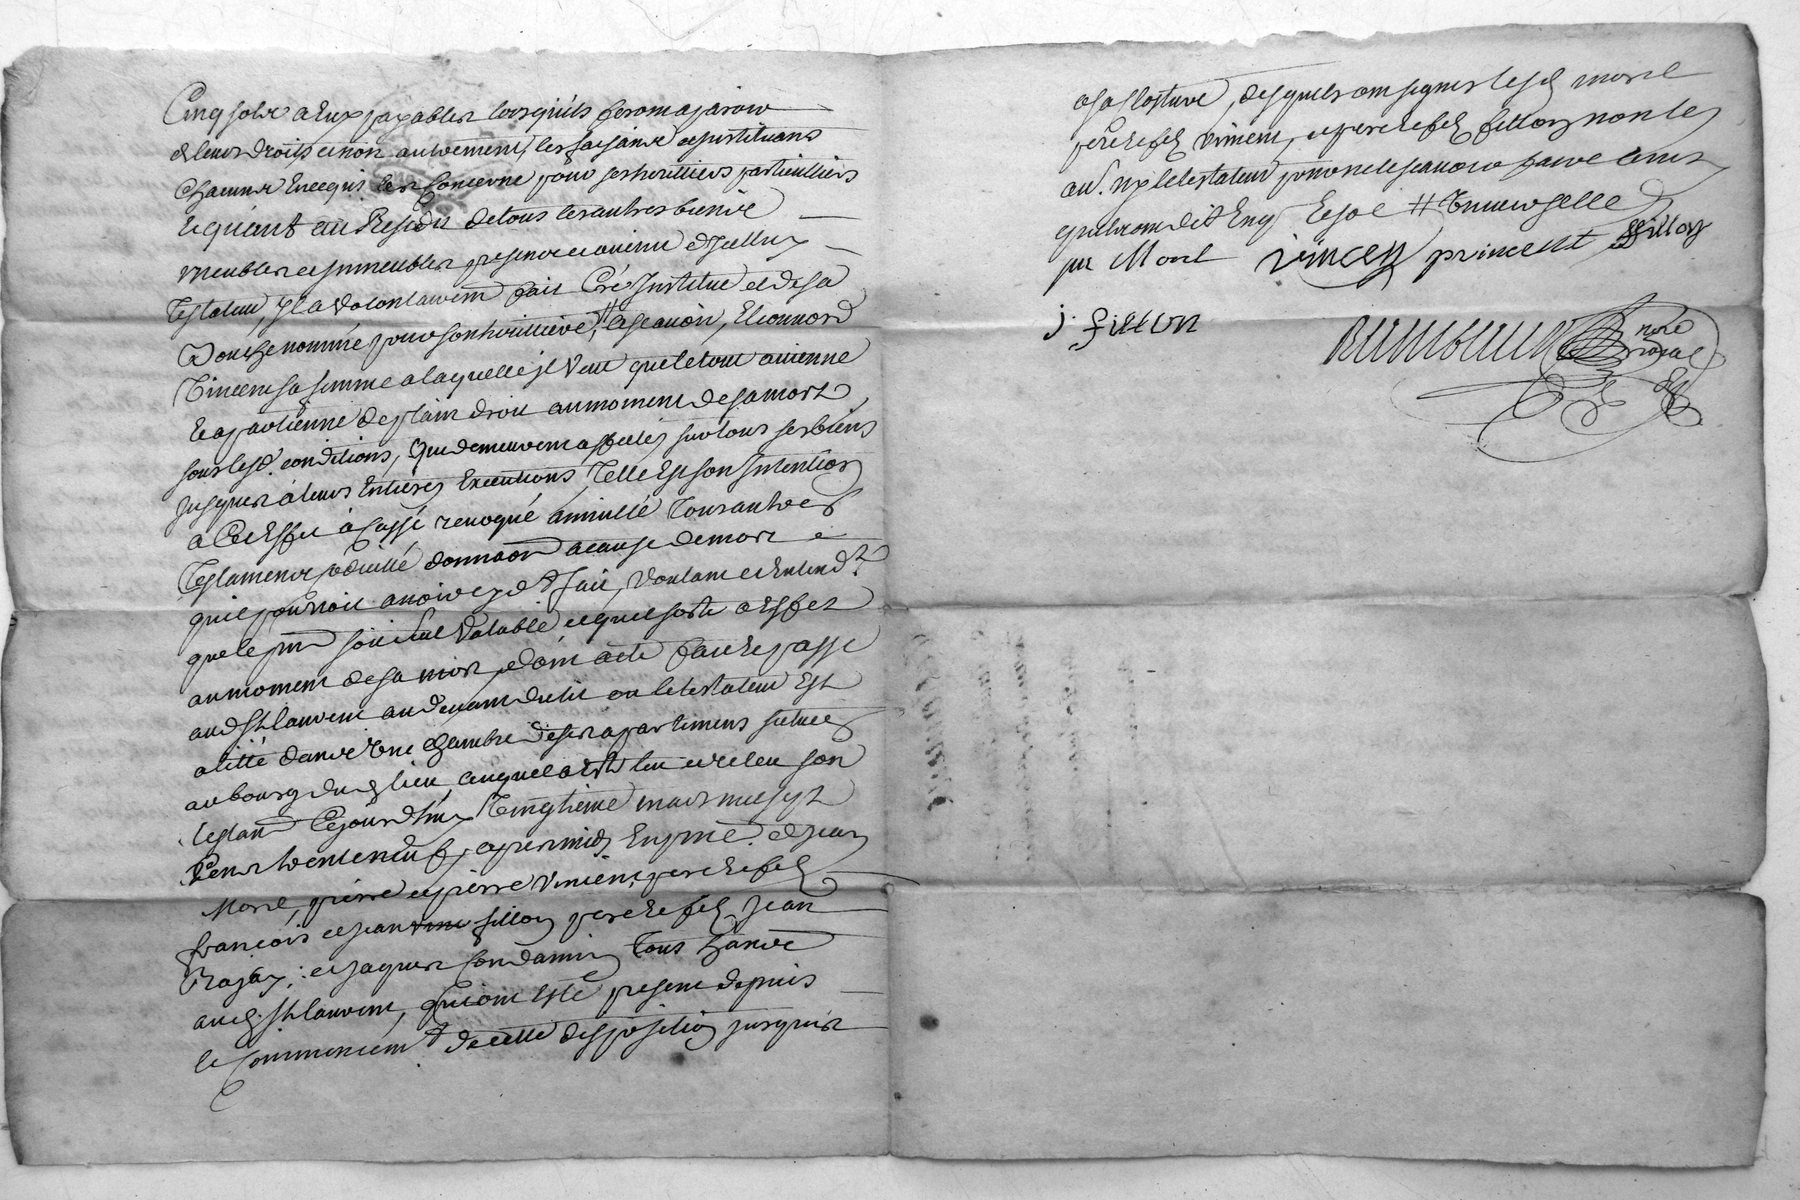 Cinq solz a Eux payables lors quils feront aparoir
de leurs droits et non autrement, les faisant et instituans
chacun En ce qui les Concerne pour ses heritiers particuliers
Et quant au Residu de tous les autres biens
meubles et immeubles presents et avenir dud
Testateur, Il a volontairem fait Créé Institué et de sa
bouche nommé pour son heritiere, # Eleonnord
Vincent sa femme a laquelle il veut que le tout avienne
Et apartienne de plain droit au moment de sa mort,
sous lesd. conditions, qui demeurent affectés sur tous ses biens
jusques à leurs Entieres Executions, Telle Est son Intention
a Cet Effet à Cassé revoqué annullé Tous autres
Testaments codicille donnaon a cause de mort
quil pourroit avoir cy d fait, voulant et Entend.
que le pnt soit seul valable et quil sorte a Effet
au moment de sa mort, dont acte fait Et passé
aud St laurent au devant du lit ou le testateur Est
alitté dans une chambre de ses apartemens situés
au bourg dud lieu, auquel a Esté leu et releu son
Testam Cejourdhuy vingtieme mars mil sept
Cens trente neuf, apres midy En pnce de Jean
Morel, pierre et pierre vincent, pere et fils
francois et jean fillon pere Et fils, Jean
et jaques Condamin Tous
aud. St laurent, qui ont Esté present depuis
le Commencem de cette disposition jusques
a sa Closture, desquels ont signes lesd morel
pere Et fils vincent, et pere et fils fillon non les
au. ny le testateur pour ne le scavoir faire ainsi
quils ont dit Enq Et # Universelle
pr Morel vincent p vincent ffillon
j. fillon
nore
royal